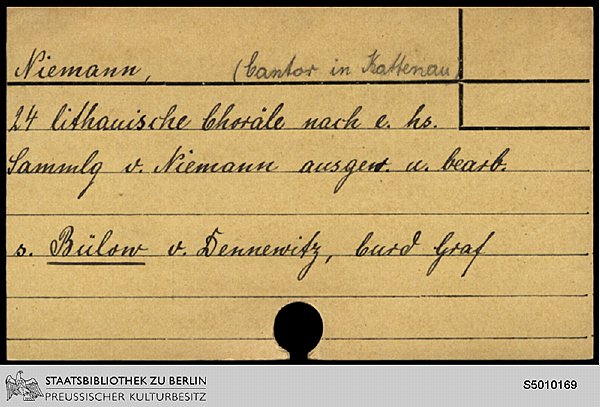 Niemann, (Cantor in Kattenau)
24 lithauische Choräle nach e. hs.
Sammlg v. Niemann ausgew. u. bearb.
s. Bülow v. Dennewitz, Curd Graf
STAATSBIBLIOTHEK ZU BERLIN
PREUSSISCHER KULTURBESITZ
S5010169